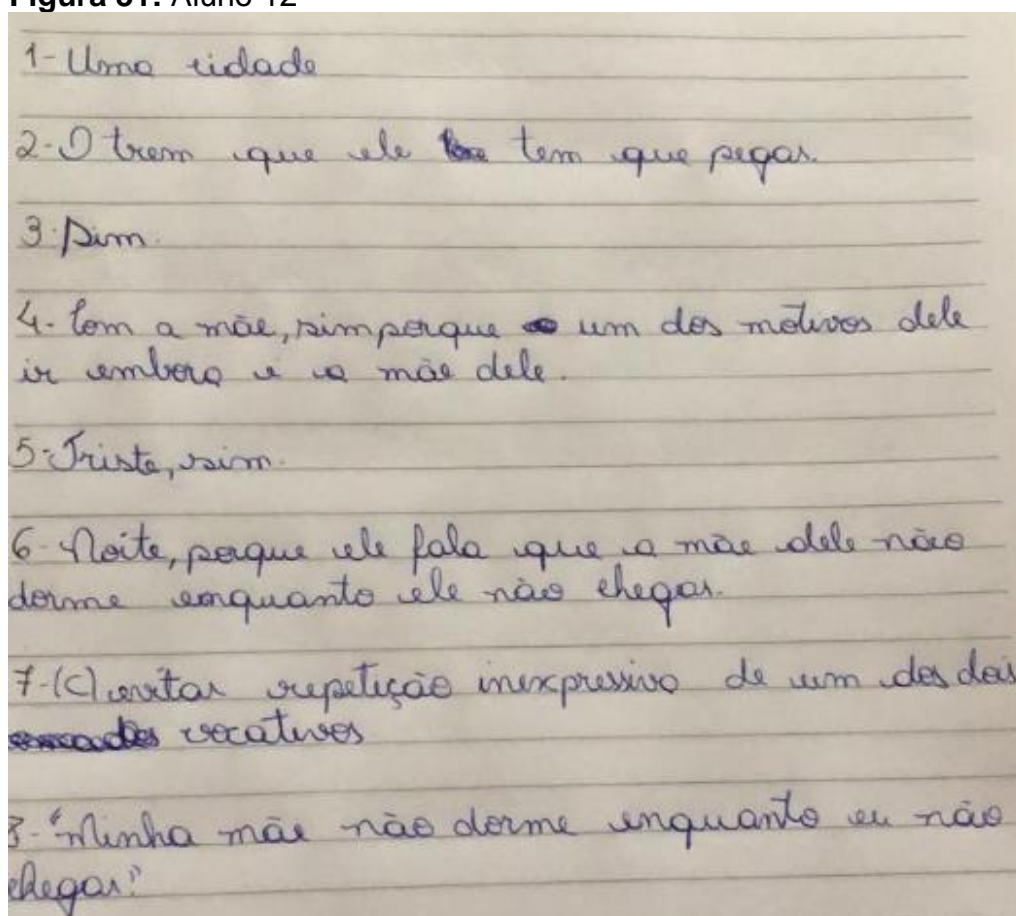 Figura 31: Aluno 12
1- Uma cidade
2- O trem que ele tem que pegar.
3- Sim.
4- Com a mãe, sim porque um dos motivos dele
ir embora e a mãe dele.
5- Triste, sim.
6- Noite, porque ele fala que a mãe dele não
dorme enquanto ele não chegar.
7- (C) evitar repetição inexpressiva de um dos dois
vocativos
8- "Minha mãe não dorme enquanto eu não
chegar."